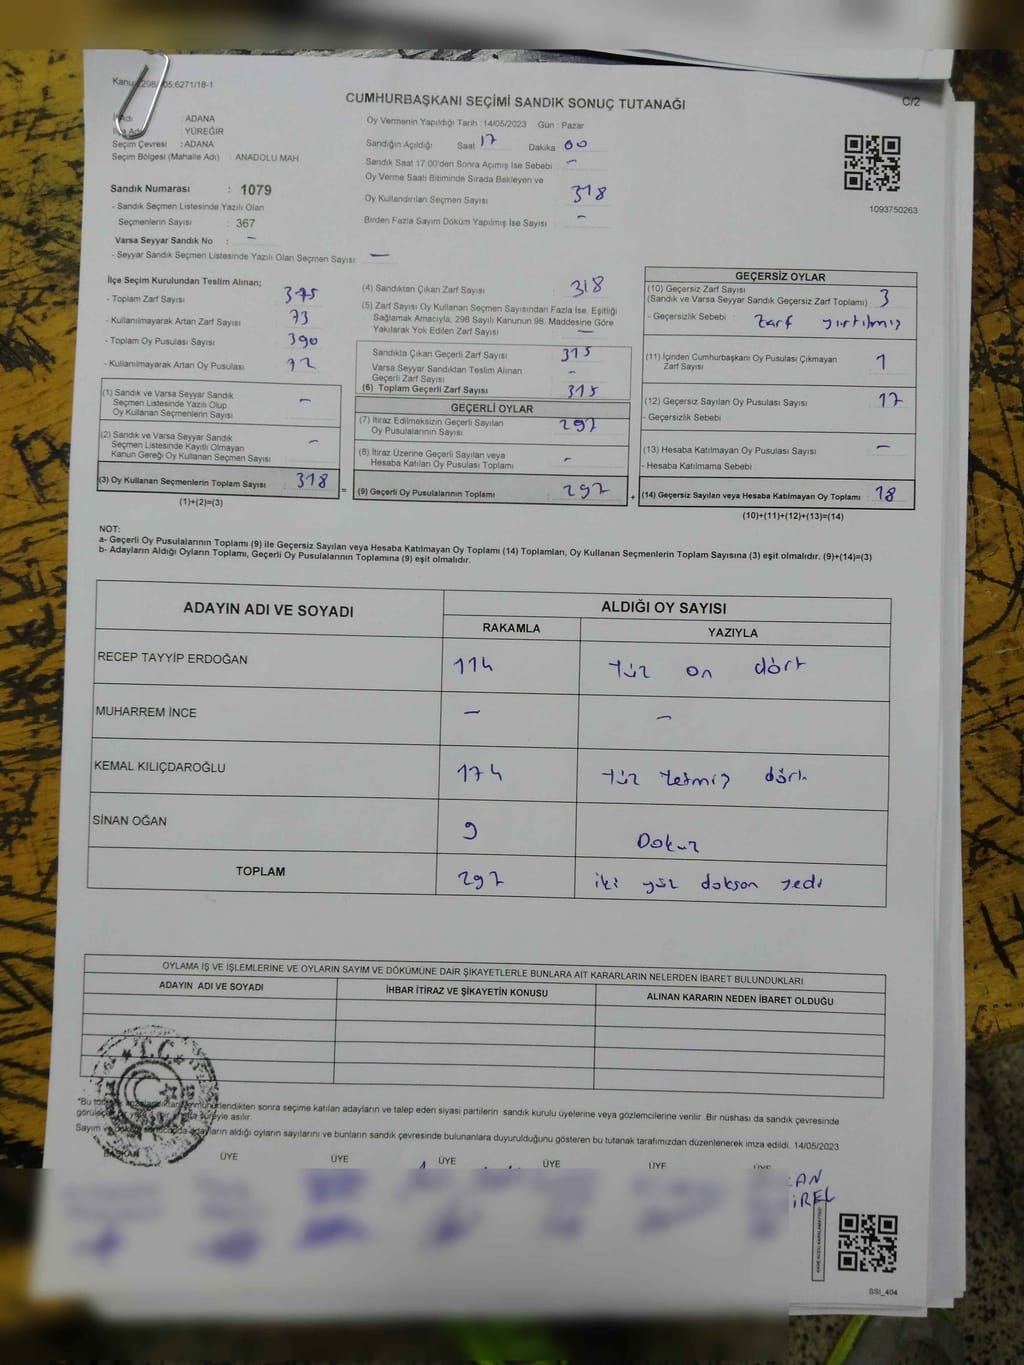 Kanun 298/ 05:6271/18-1
CUMHURBAŞKANI SEÇİMİ SANDIK SONUÇ TUTANAĞI
C/2
İl Adı : ADANA
İlçe Adı : YÜREĞİR
Seçim Çevresi : ADANA
Seçim Bölgesi (Mahalle Adı) : ANADOLU MAH.
Oy Vermenin Yapıldığı Tarih : 14/05/2023 Gün : Pazar
Sandığın Açıldığı Saat 17 Dakika : 00
Sandık Saat 17.00'den Sonra Açılmış İse Sebebi : -
Oy Verme Saati Bitiminde Sırada Bekleyen ve
Oy Kullandırılan Seçmen Sayısı : 318
Birden Fazla Sayım Döküm Yapılmış İse Sayısı : -
1093750263
Sandık Numarası : 1079
- Sandık Seçmen Listesinde Yazılı Olan
Seçmenlerin Sayısı : 367
Varsa Seyyar Sandık No : -
- Seyyar Sandık Seçmen Listesinde Yazılı Olan Seçmen Sayısı: -
İlçe Seçim Kurulundan Teslim Alınan;
- Toplam Zarf Sayısı :
- Kullanılmayarak Artan Zarf Sayısı : 73
- Toplam Oy Pusulası Sayısı : 390
- Kullanılmayarak Artan Oy Pusulası : 72
(1) Sandık ve Varsa Seyyar Sandık
Seçmen Listesinde Yazılı Olup
Oy Kullanan Seçmenlerin Sayısı : -
(2) Sandık ve Varsa Seyyar Sandık
Seçmen Listesinde Kayıtlı Olmayan
Kanun Gereği Oy Kullanan Seçmen Sayısı : -
(3) Oy Kullanan Seçmenlerin Toplam Sayısı : 318
(1)+(2)=(3)
(4) Sandıktan Çıkan Zarf Sayısı : 318
(5) Zarf Sayısı Oy Kullanan Seçmen Sayısından Fazla İse, Eşitliği
Sağlamak Amacıyla, 298 Sayılı Kanunun 98. Maddesine Göre
Yakılarak Yok Edilen Zarf Sayısı : -
Sandıkta Çıkan Geçerli Zarf Sayısı : 315
Varsa Seyyar Sandıktan Teslim Alınan
Geçerli Zarf Sayısı : -
(6) Toplam Geçerli Zarf Sayısı : 315
GEÇERLİ OYLAR
(7) İtiraz Edilmeksizin Geçerli Sayılan
Oy Pusulalarının Sayısı : 297
(8) İtiraz Üzerine Geçerli Sayılan veya
Hesaba Katılan Oy Pusulası Toplamı : -
= (9) Geçerli Oy Pusulalarının Toplamı : 297
GEÇERSİZ OYLAR
(10) Geçersiz Zarf Sayısı
(Sandık ve Varsa Seyyar Sandık Geçersiz Zarf Toplamı) : 3
- Geçersizlik Sebebi : Zarf yırtılmış
(11) İçinden Cumhurbaşkanı Oy Pusulası Çıkmayan
Zarf Sayısı : 1
(12) Geçersiz Sayılan Oy Pusulası Sayısı : 17
- Geçersizlik Sebebi :
(13) Hesaba Katılmayan Oy Pusulası Sayısı : -
- Hesaba Katılmama Sebebi :
+ (14) Geçersiz Sayılan veya Hesaba Katılmayan Oy Toplamı : 18
(10)+(11)+(12)+(13)=(14)
NOT:
a- Geçerli Oy Pusulalarının Toplamı (9) ile Geçersiz Sayılan veya Hesaba Katılmayan Oy Toplamı (14) Toplamları, Oy Kullanan Seçmenlerin Toplam Sayısına (3) eşit olmalıdır. (9)+(14)=(3)
b- Adayların Aldığı Oyların Toplamı, Geçerli Oy Pusulalarının Toplamına (9) eşit olmalıdır.
ADAYIN ADI VE SOYADI
ALDIĞI OY SAYISI
RAKAMLA YAZIYLA
RECEP TAYYİP ERDOĞAN 114 Yüz on dört
MUHARREM İNCE - -
KEMAL KILIÇDAROĞLU 174 Yüz Yetmiş dört
SİNAN OĞAN 9 Dokuz
TOPLAM 297 iki yüz doksan yedi
OYLAMA İŞ VE İŞLEMLERİNE VE OYLARIN SAYIM VE DÖKÜMÜNE DAİR ŞİKAYETLERLE BUNLARA AİT KARARLARIN NELERDEN İBARET BULUNDUKLARI
ADAYIN ADI VE SOYADI İHBAR İTİRAZ VE ŞİKAYETİN KONUSU ALINAN KARARIN NEDEN İBARET OLDUĞU
T.C.
*Bu sonra seçime katılan adayların ve talep eden siyasi partilerin sandık kurulu üyelerine veya gözlemcilerine verilir .Bir nüshası da sandık çevresinde
asılır.
Sayım ve aldığı oyların sayılarını ve bunların sandık çevresinde bulunanlara duyurulduğunu gösteren bu tutanak tarafımızdan düzenlenerek imza edildi. 14/05/2023
BAŞKAN ÜYE ÜYE ÜYE ÜYE ÜYE ÜYE
SSI_404